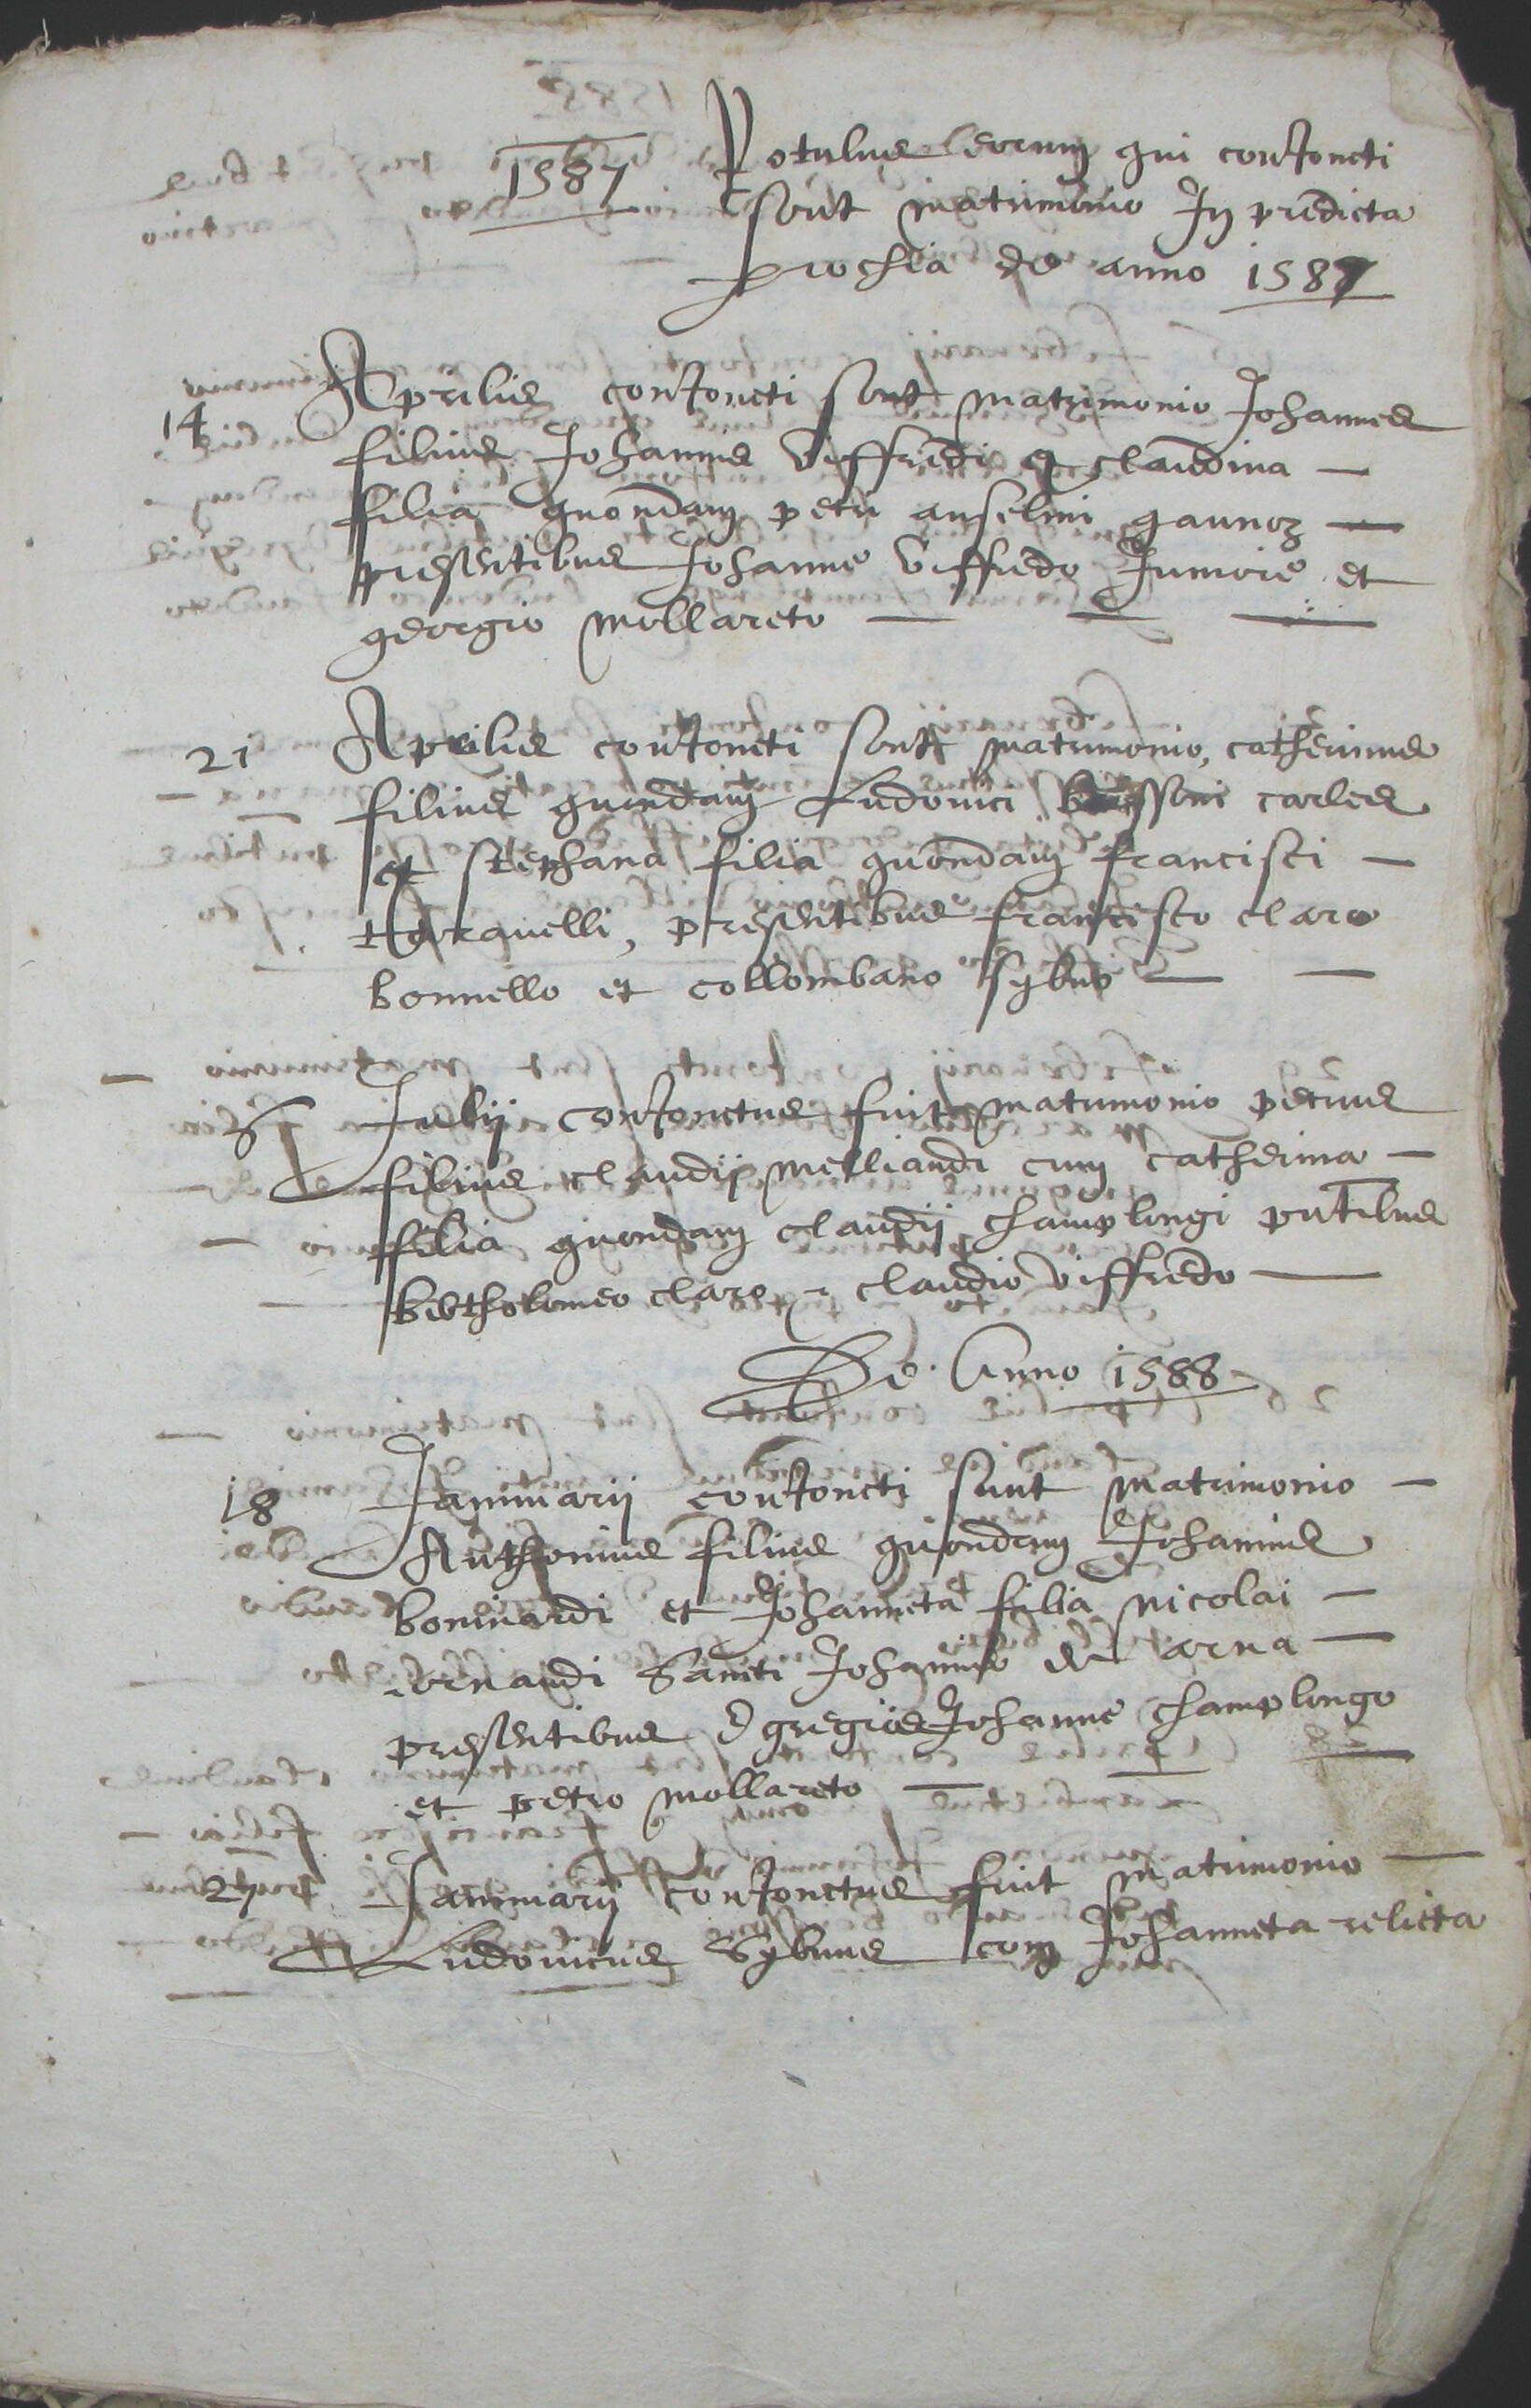 1587
Rotulus eorum qui conjoncti
sont matrimonio In predicta
prochia de anno 1587
14 Aprilis conjoncti sont matrimonio Johannes
filius Johannis Viffredi et claudina
filia quondam petri anselmi gaunoz
presentibus Johanne Viffredo Juniore et
georgio mollareto
21 Aprilis conjoncti sont matrimonio, catherinus
filius quondam Ludovici carles
et stephana filia quondam francisci
presentibus francisco claro
bonnello et collombano sybuo
6 Julij conjonctus fuit matrimonio petrus
filius claudij melliandi cum catherina
filia quondam claudij champlongi pntibus
bertholomeo claro claudio viffredo
De Anno 1588
18 Januarij conjoncti sunt matrimonio
Anthonius filius quondam Johannis
boninardi et Johanneta filia nicolai
ornandi Sancti Johannis de arna
presentibus Egregiis Johanne champlongo
et petro mollareto
27 Januarij conjonctus fuit matrimonio
Ludovicus Sybuus com Johanneta relicta